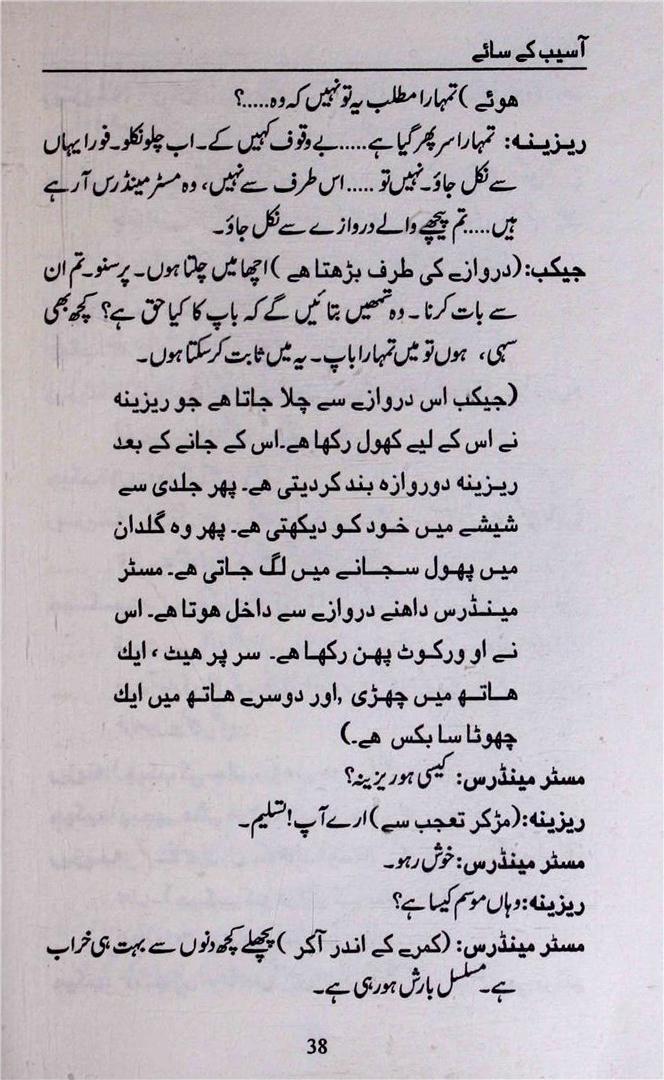 آسیب کے سائے
ہوئے) تمہارا مطلب یہ تو نہیں کہ وہ.....؟
ریزینہ: تمہارا سر پھر گیا ہے.....بے وقوف کہیں کے۔ اب چلو نکلو۔ فوراً یہاں
سے نکل جاؤ۔ نہیں تو ..... اس طرف سے نہیں، وہ مسٹر مینڈرس آرہے
ہیں.....تم پیچھے والے دروازے سے نکل جاؤ۔
جیکب: (دروازے کی طرف بڑھتا ہے) اچھا میں چلتا ہوں۔ پر سنو۔ تم ان
سے بات کرنا۔ وہ تمھیں بتائیں گے کہ باپ کا کیا حق ہے؟ کچھ بھی
سہی، ہوں تو میں تمہارا باپ۔ یہ میں ثابت کر سکتا ہوں۔
(جیکب اس دروازے سے چلا جاتا ہے جو ریزینہ
نے اس کے لیے کھول رکھا ہے۔اس کے جانے کے بعد
ریزینہ دوروازہ بند کردیتی ہے۔ پھر جلدی سے
شیشے میں خود کو دیکھتی ہے۔ پھر وہ گلدان
میں پھول سجانے میں لگ جاتی ہے۔ مسٹر
مینڈرس داہنے دروازے سے داخل ہوتا ہے۔ اس
نے او ورکوٹ پہن رکھا ہے۔ سر پر ہیٹ، ایک
ہاتھ میں چھڑی ,اور دوسرے ہاتھ میں ایک
چھوٹا سا بکس ہے۔)
مسٹر مینڈرس: کیسی ہو ریزینہ؟
ریزینہ: (مڑکر تعجب سے) ارے آپ! تسلیم۔
مسٹر مینڈرس: خوش رہو۔
ریزینہ: وہاں موسم کیسا ہے؟
مسٹر مینڈرس: (کمرے کے اندر آکر) پچھلے کچھ دنوں سے بہت ہی خراب
ہے۔ مسلسل بارش ہو رہی ہے۔
38